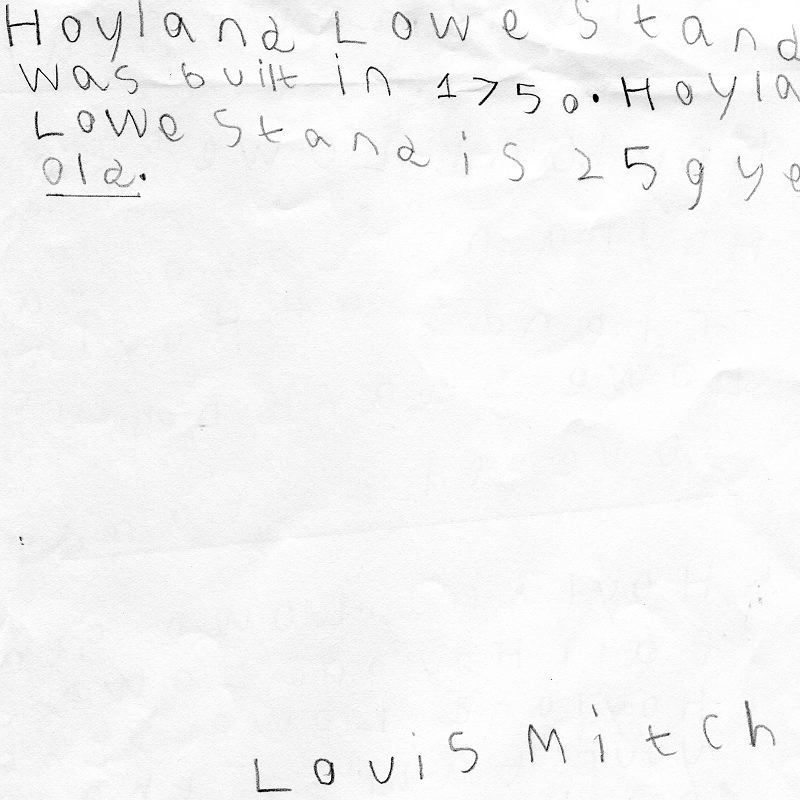 Hoyland Lowe Stand
was built in 1750. Hoyla
Lowe Stand is 259 ye
old.
Louis Mitch